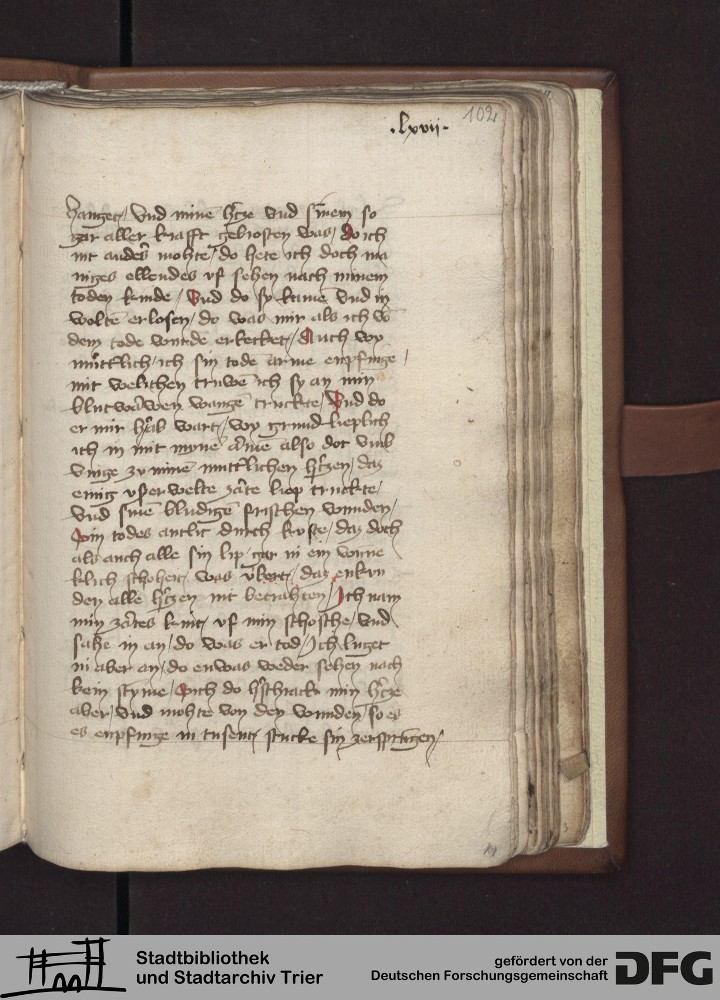 102
.lxvii.
hanget / Vnd mine h͛cze vnd sinem so
gar aller krafft gebrosten was / do ich
nit anders mohte / do hete ich doch ma
niges ellendes vf sehen nach minem
toden kinde / Vnd do sy kamē vnd in
woltē erlosen / do was mir als ich vō
dem tode wurde erkecket / Auch wy
mütt͛lich / ich sin tode arme enpfinge /
mit welichen truwē ich sy an min
blutvarwen wange truckte / Vnd do
er mir h͛ab wart / wy grund lieplich
ich in mit myne armē also dot vmb
vinge zu minē mutt͛lichen h͛czen / daz
einig vserwelte zarte liep truckte /
Vnd sinē bludigē frischen wunden /
sin todes antlit durch kuste / daz doch
als auch alle sin lip gar in ein wune
klich schohen / was v͛kert / daz enkun
den alle h͛czen nit betrahten / Ich nam
min zartes kint / vf min schosche / vnd
sahe in an / do was er tod / Ich luget
in aber an / do enwas weder sehen nach
kein styme / Sich do h͛schrack min h͛cze
aber / vnd mohte von den wunden so es
es enpfinge in tusent stucke sin zersprūgen /
Stadtbibliothek
und Stadtarchiv Trier
gefördert von der
Deutschen Forschungsgemeinschaft
DFG